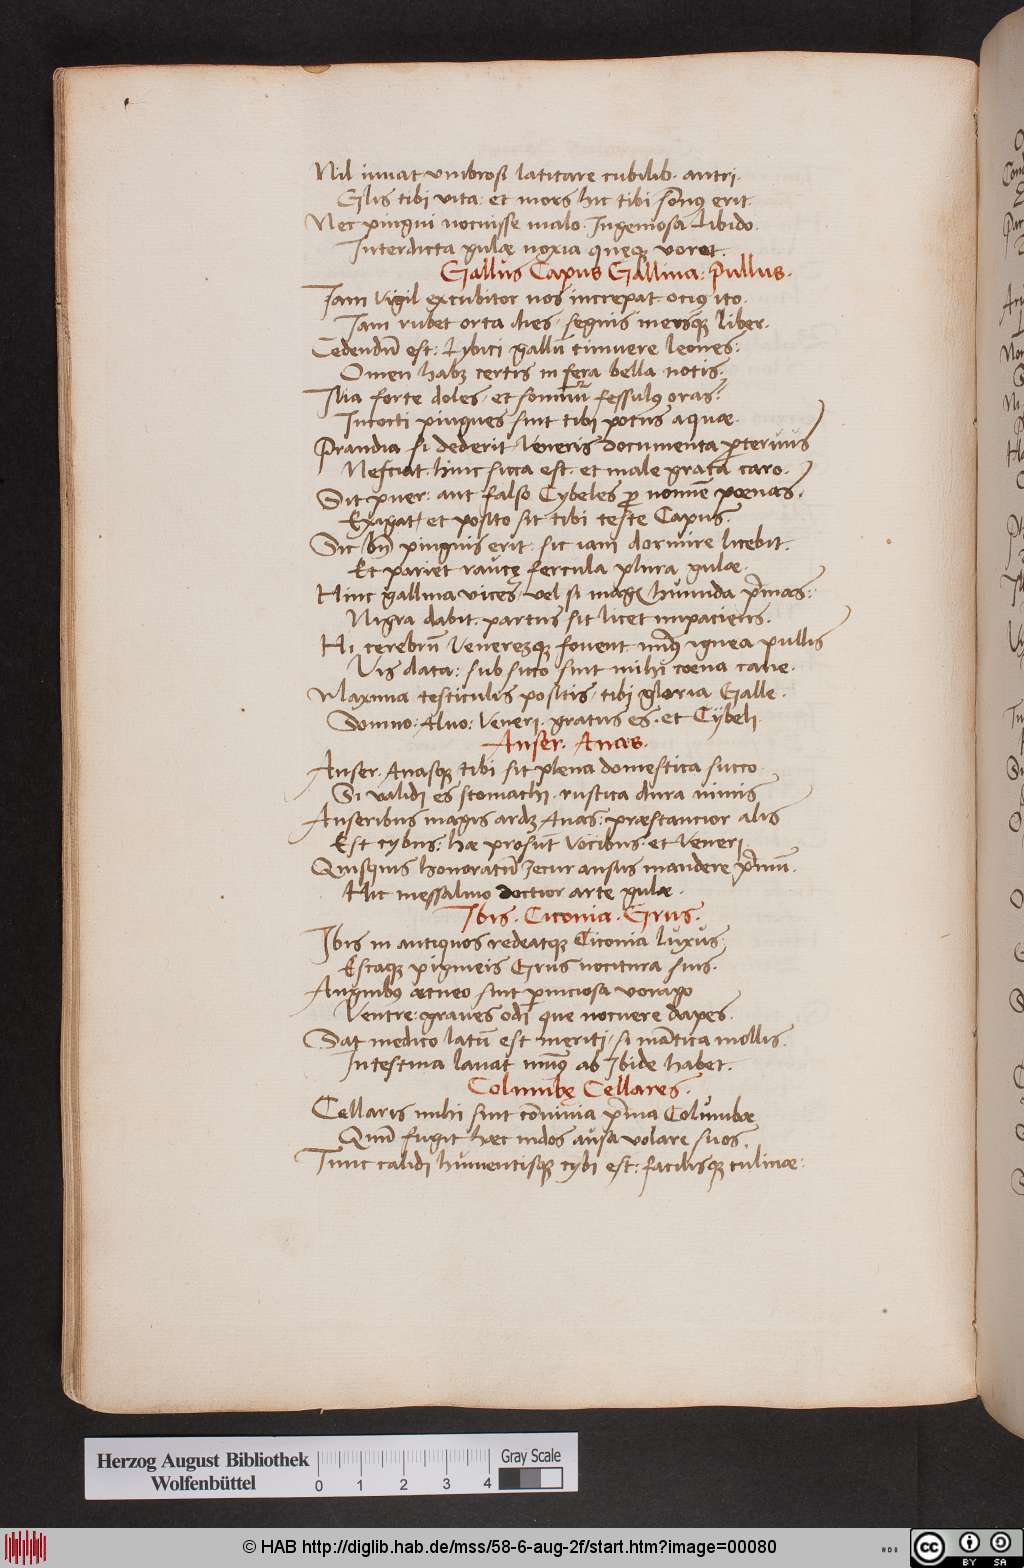 Nil iuuat umbrosi latitare cubilib. antri.
Glis tibi vita: et mors hic tibi somnꝰ erit.
Nec pingui nocuisse malo. Ingeniosa Libido.
Interdicta gulæ noxia queqꝫ voret.
Gallus Capus Gallina: Pullus.
Iam vigil excubitor nos increpat ociꝰ ito.
Iam rubet orta dies, segnis mersqꝫ liber.
Cedendũ est: Lybici gallũ timuere leones:
Omen habꝫ certis in fera bella notis.
Ilia forte doles, et somnũ fessulꝰ oras?
Incocti pingues sint tibi potus aquæ.
Prandia si dederit, Veneris documenta proteruus
Nesciat: hinc sicca est et male grata caro.
Sit puer: aut falso Cybeles pro nomẽ pœnas.
Exigat, et posito sit tibi teste Capus.
Sic bñ pinguis erit: sic iam dormire licebit.
Et pariet raucę fercula plura gulæ.
Hinc gallina vices, vel si magꝭ humida primas:
Nigra dabit. partus sit licet impaciens.
Hi cerebrũ Veneremqꝫ fouent ignea pullis
Vis data: sub sicco sint mihi coena cane.
Maxima testiculis positis, tibi gloria Galle.
Somno: Aluo: Veneri. gratus es. et Cybeli
Anser. Anas.
Anser. Anasqꝫ tibi sit plena domestica succo
Si validi es stomachi. rustica dura nimis
Anseribus magis ardꝫ Anas: præstancior alis
Est cybus: hæ prosũt vocibus. et Veneri
Quisquis honoratũ Iecur ausus mandere primũ.
Hic messalino doctior arte gulæ.
Ibis. Ciconia. Grus.
Ibis in antiquos redeatqꝫ Ciconia luxus:
Escaqꝫ pigmeis Grus nocitura suis.
Anguibꝰ ætneo sint perniciosa vorago
Ventre: graues odi que nocuere dapes.
Sat medico latũ est meriti, si mãtica mollis.
Intestina lauat munꝰ ab Ibide habet.
Columbę Cellares.
Cellaris mihi sint cõniuia prima Columbæ
Quũ fugit hæc nidos ausa volare suos.
Tunc calidi humentisqꝫ cybi est: facilisqꝫ culinæ:
Herzog August Bibliothek
Wolfenbüttel
0 1 2 3 4
Gray Scale
© HAB http://diglib.hab.de/mss/58-6-aug-2f/start.htm?image=00080
cc BY SA